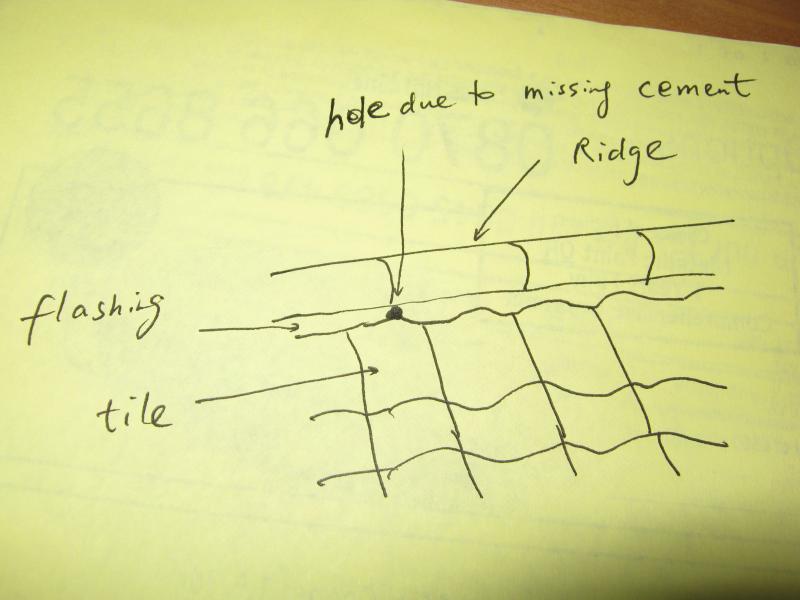 hole due to missing cement
Ridge
flashing
tile